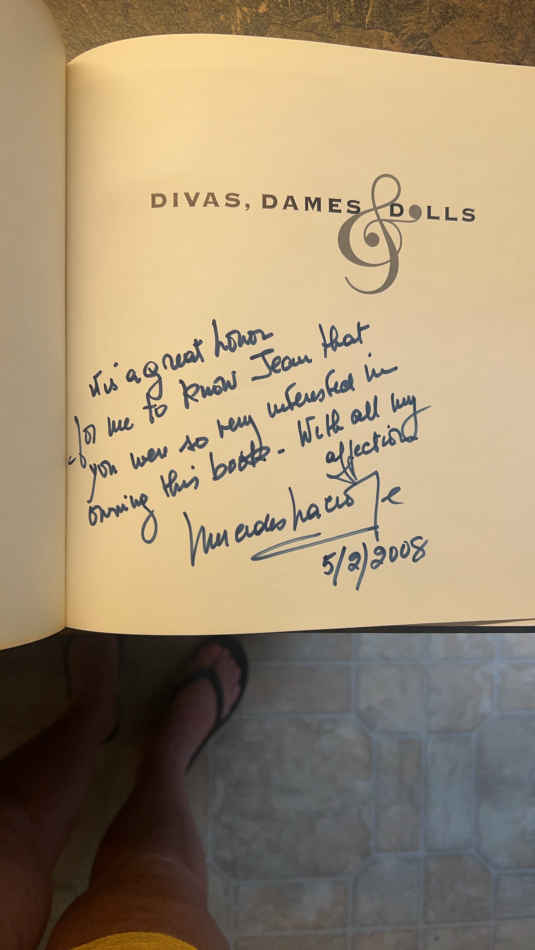 DIVAS, DAMES & DOLLS
it is a great honor
for me to know Jean that
you were so very interested in
owning this book. With all my
affection
Mercedes
5/2/2008